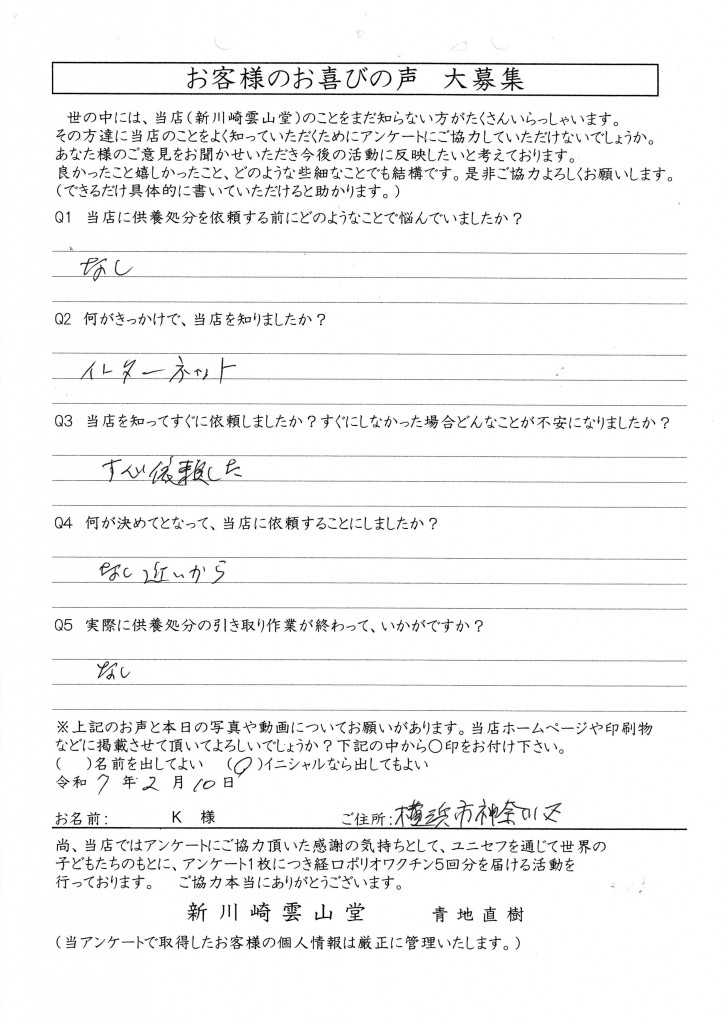 お客様のお喜びの声 大募集
世の中には、当店(新川崎雲山堂)のことをまだ知らない方がたくさんいらっしゃいます。
その方達に当店のことをよく知っていただくためにアンケートにご協力していただけないでしょうか。
あなた様のご意見をお聞かせいただき今後の活動に反映したいと考えております。
良かったこと嬉しかったこと、どのような些細なことでも結構です。是非ご協力よろしくお願いします。
(できるだけ具体的に書いていただけると助かります。)
Q1 当店に供養処分を依頼する前にどのようなことで悩んでいましたか?
なし
Q2 何がきっかけで、当店を知りましたか?
インターネット
Q3 当店を知ってすぐに依頼しましたか?すぐにしなかった場合どんなことが不安になりましたか?
すぐ依頼した
Q4 何が決めてとなって、当店に依頼することにしましたか?
なし 近いから
Q5 実際に供養処分の引き取り作業が終わって、いかがですか?
なし
※上記のお声と本日の写真や動画についてお願いがあります。当店ホームページや印刷物
などに掲載させて頂いてよろしいでしょうか?下記の中から○印をお付け下さい。
( )名前を出してよい (○)イニシャルなら出してもよい
令和 7 年 2 月 10 日
お名前: K 様 ご住所: 横浜市神奈川区
尚、当店ではアンケートにご協力頂いた感謝の気持ちとして、ユニセフを通じて世界の
子どもたちのもとに、アンケート1枚につき経口ポリオワクチン5回分を届ける活動を
行っております。 ご協力本当にありがとうございます。
新川崎雲山堂 青地直樹
(当アンケートで取得したお客様の個人情報は厳正に管理いたします。)